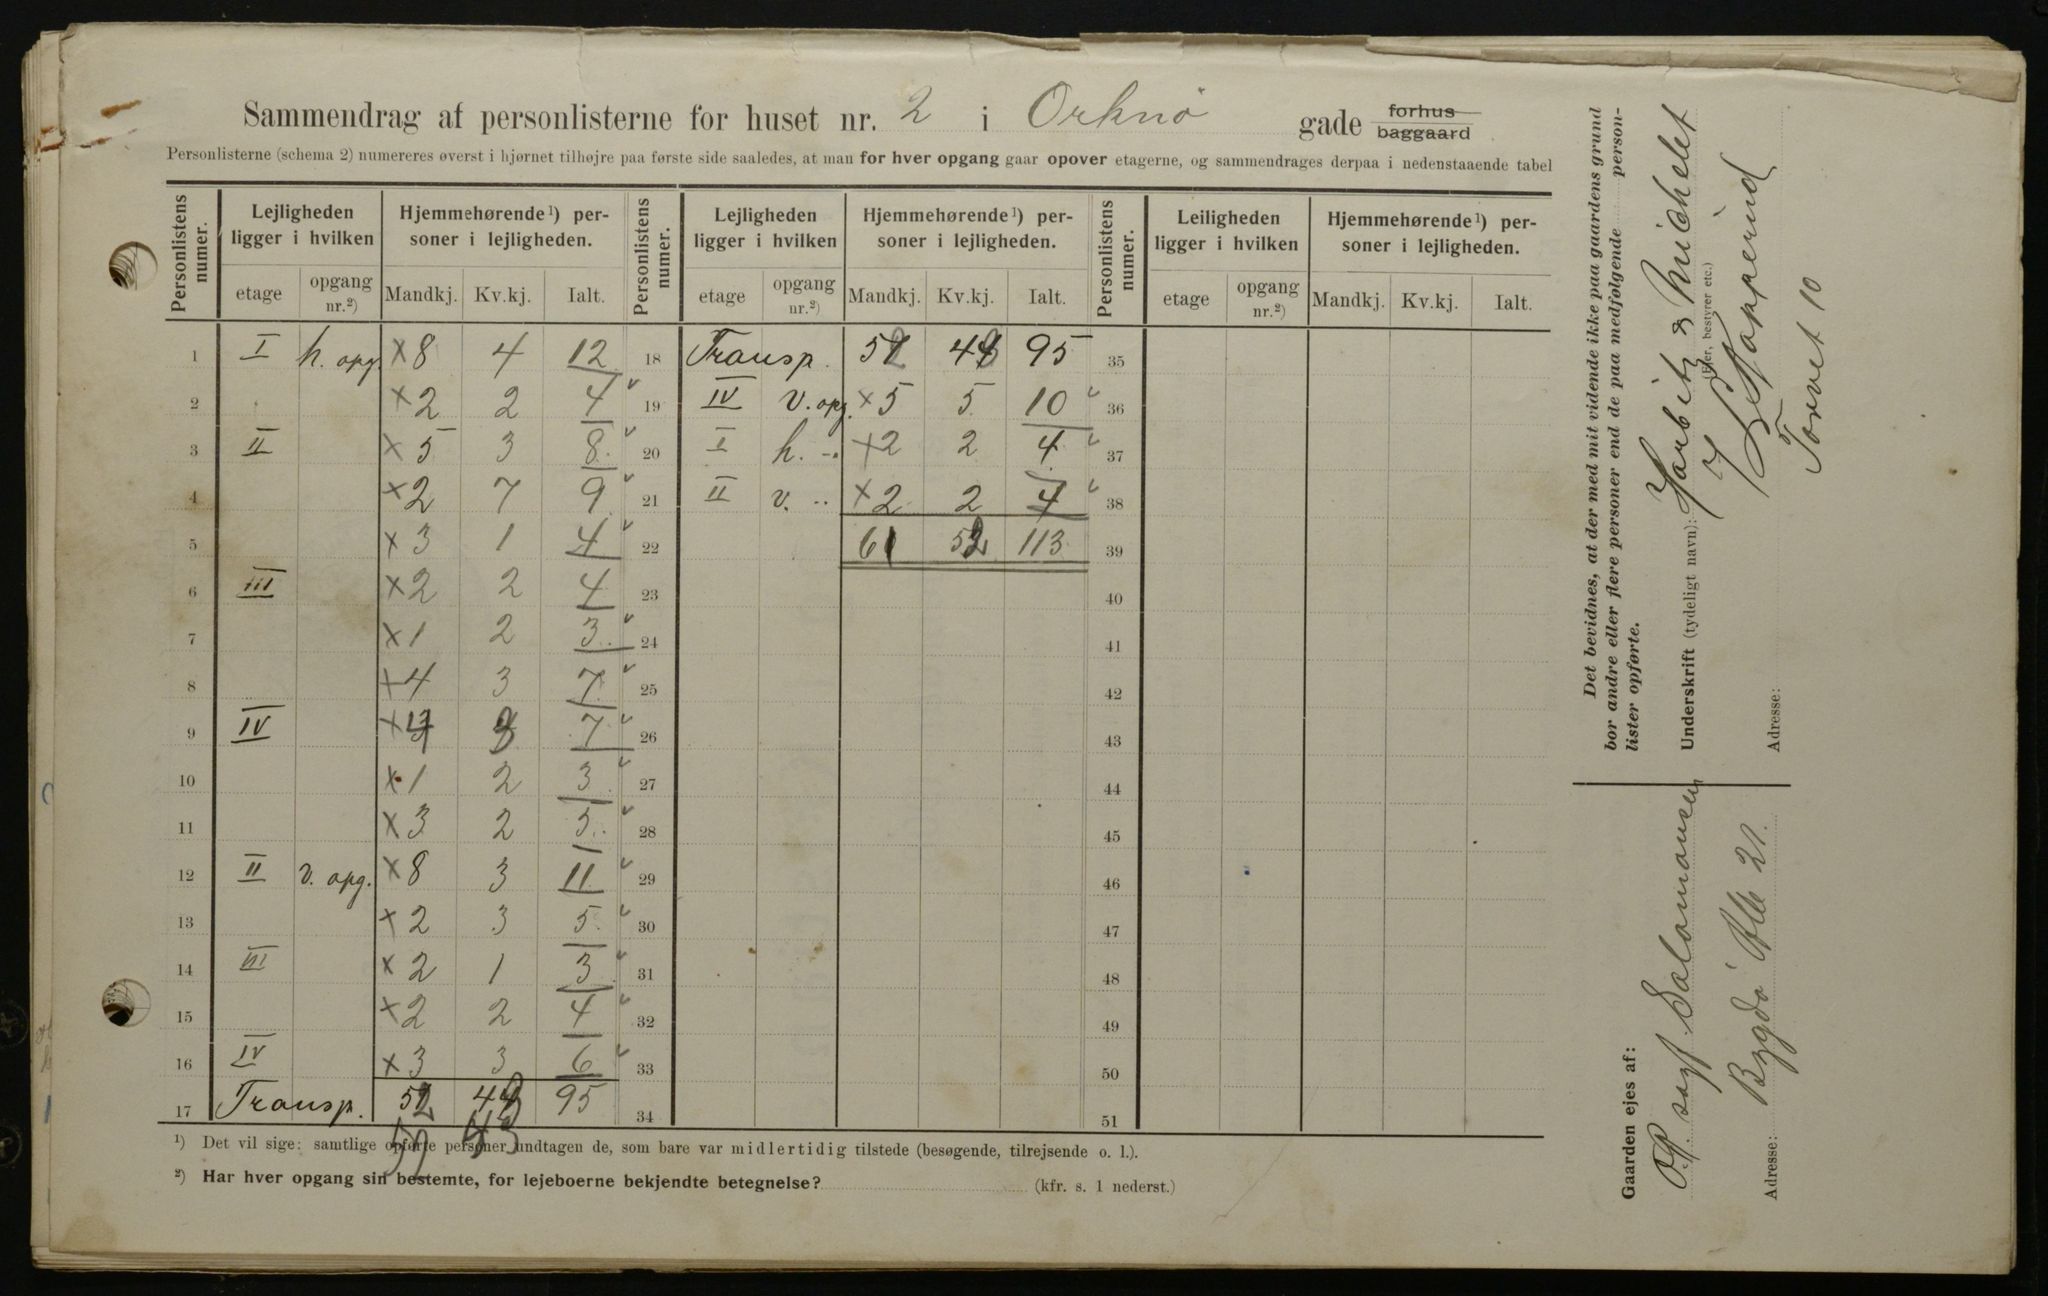 Sammendrag af personlisterne for huset nr. 2 i Orknø gade forhus baggaard
Personlisterne (schema 2) numereres øverst i hjørnet tilhøjre paa første side saaledes, at man for hver opgang gaar opover etagerne, og sammendrages derpaa i nedenstaaende tabel
Personlistens numer. Lejligheden ligger i hvilken Hjemmehørende¹) personer i lejligheden. Personlistens numer. Lejligheden ligger i hvilken Hjemmehørende¹) personer i lejligheden. Personlistens numer. Leiligheden ligger i hvilken Hjemmehørende¹) personer i lejligheden.
etage opgang nr.²) Mandkj. Kv.kj. Ialt. etage opgang nr.²) Mandkj. Kv.kj. Ialt. etage opgang nr.²) Mandkj. Kv.kj. Ialt.
1 I h. opg. × 8 4 12 18 Transp. 52 43 95 35
2 × 2 2 4 19 IV v. opg. × 5 5 10 36
3 II × 5 3 8 20 I h. - × 2 2 4 37
4 × 2 7 9 21 II v. - × 2 2 4 38
5 × 3 1 4 22 61 52 113 39
6 III × 2 2 4 23 40
7 × 1 2 3 24 41
8 × 4 3 7 25 42
9 IV × 7 26 43
10 × 1 2 3 27 44
11 × 3 2 5 28 45
12 II v. opg. × 8 3 11 29 46
13 × 2 3 5 30 47
14 III × 2 1 3 31 48
15 × 2 2 4 32 49
16 IV × 3 3 6 33 50
17 Transp. 52 43 95 34 51
52 43
¹) Det vil sige: samtlige opførte personer undtagen de, som bare var midlertidig tilstede (besøgende, tilrejsende o. l.).
²) Har hver opgang sin bestemte, for lejeboerne bekjendte betegnelse? (kfr. s. 1 nederst.)
Det bevidnes, at der med mit vidende ikke paa gaardens grund
bor andre eller flere personer end de paa medfølgende personlister opførte.
Underskrift (tydeligt navn): Harbitz & Michelet
(Ejer, bestyrer etc.)
Adresse: Torvet 10
Gaarden ejes af:
O.r. sagf. Salomonsen
Adresse: Bygdø Alle 21.